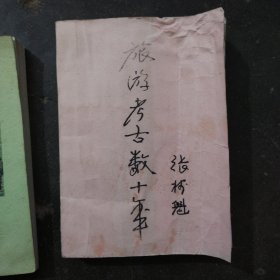 旅游考古数十年
张树魁